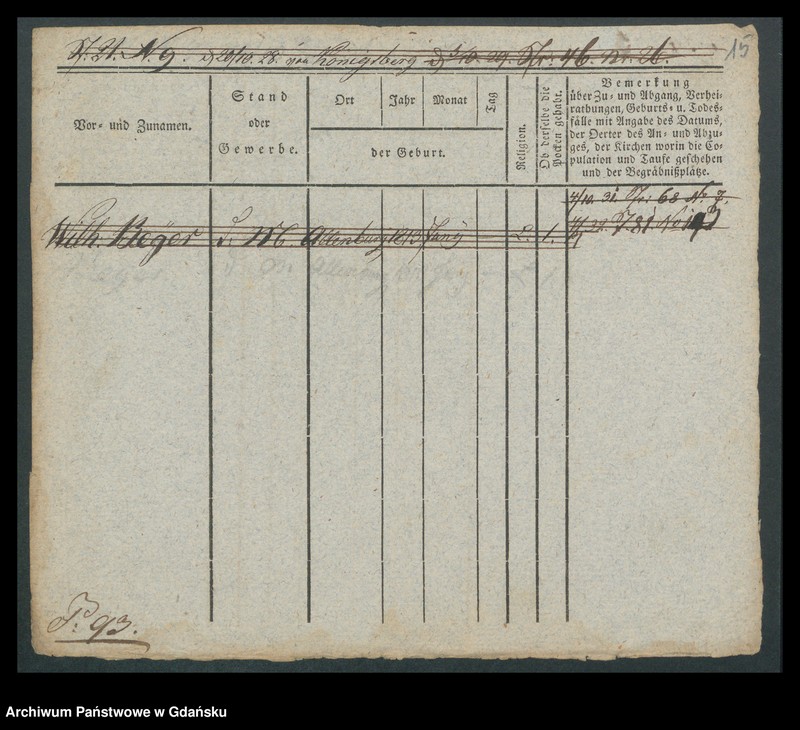 15
N. 9. d 20/10. 28. von Königsberg Nr: 46. Nr. 26.
Vor= und Zunamen.
Stand
oder
Gewerbe.
Ort
Jahr
Monat
Tag
der Geburt.
Religion.
Ob derselbe die
Pocken gehabt.
Bemerkung
über Zu= und Abgang, Verhei=
rathungen, Geburts= u. Todes=
fälle mit Angabe des Datums,
der Oerter des An= und Abzu=
ges, der Kirchen worin die Co=
pulation und Taufe geschehen
und der Begräbnißplätze.
4/10. 31. Nr: 68 No. 7.
Wilh. Beger 1813 L. 1.
93.
Archiwum Państwowe w Gdańsku